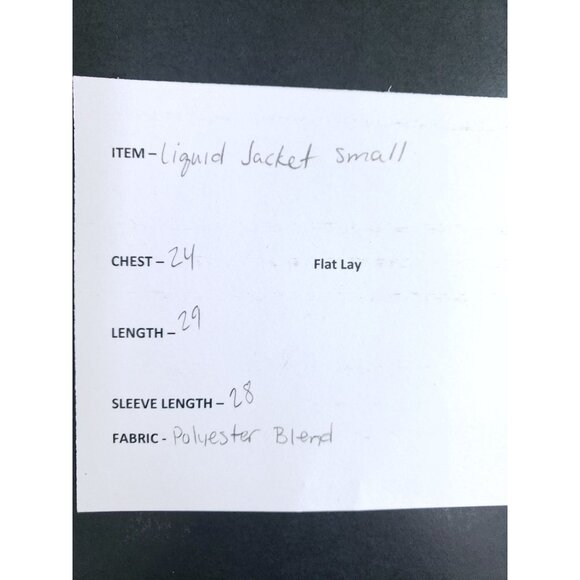 ITEM – Liquid Jacket Small
CHEST – 24 Flat Lay
LENGTH – 29
SLEEVE LENGTH – 28
FABRIC - Polyester Blend